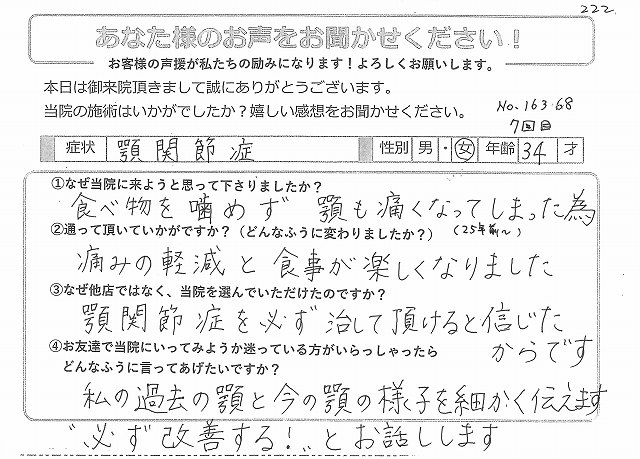 222
あなた様のお声をお聞かせください！
お客様の声援が私たちの励みになります！よろしくお願いします。
本日は御来院頂きまして誠にありがとうございます。
当院の施術はいかがでしたか？嬉しい感想をお聞かせください。
No.163.68
7回目
症状 顎関節症 性別 男・女 年齢 34 才
①なぜ当院に来ようと思って下さりましたか？
食べ物を噛めず 顎も痛くなってしまった為
②通って頂いていかがですか？（どんなふうに変わりましたか？）（25年前〜）
痛みの軽減と食事が楽しくなりました
③なぜ他店ではなく、当院を選んでいただけたのですか？
顎関節症を必ず治して頂けると信じた
からです
④お友達で当院にいってみようか迷っている方がいらっしゃったら
どんなふうに言ってあげたいですか？
私の過去の顎と今の顎の様子を細かく伝えます
"必ず改善する！"とお話しします